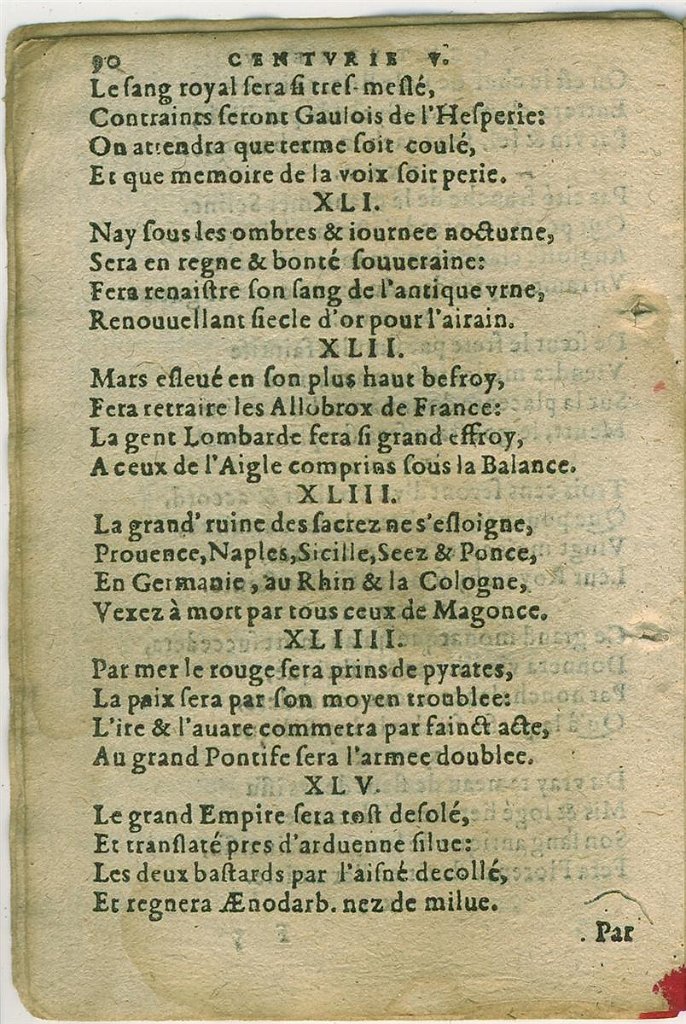 90 CENTVRIE V.
Le ſang royal ſera ſi treſ-meſlé,
Contraints ſeront Gaulois de l'Heſperie:
On attendra que terme ſoit coulé,
Et que memoire de la voix ſoit perie.
XLI.
Nay ſous les ombres & iournee nocturne,
Sera en regne & bonté ſouueraine:
Fera renaiſtre ſon ſang de l'antique vrne,
Renouuellant ſiecle d'or pour l'airain.
XLII.
Mars eſleué en ſon plus haut befroy,
Fera retraire les Allobrox de France:
La gent Lombarde fera ſi grand effroy,
A ceux de l'Aigle comprins ſous la Balance.
XLIII.
La grand' ruine des ſacrez ne s'eſloigne,
Prouence, Naples, Sicille, Seez & Ponce,
En Germanie, au Rhin & la Cologne,
Vexez à mort par tous ceux de Magonce.
XLIIII.
Par mer le rouge ſera prins de pyrates,
La paix ſera par ſon moyen troublee:
L'ire & l'auare commetra par fainct acte,
Au grand Pontife ſera l'armee doublee.
XLV.
Le grand Empire ſera toſt deſolé,
Et tranſlaté pres d'arduenne ſilue:
Les deux baſtards par l'aiſné decollé,
Et regnera Ænodarb. nez de milue.
Par